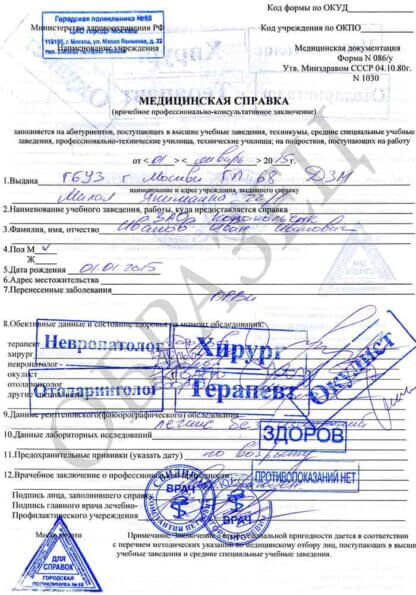 Код формы по ОКУД
Городская поликлиника №68
ЦАО города Москвы
119180, г. Москва, ул. Малая Якиманка, д. 22
Министерство здравоохранения РФ
Код учреждения по ОКПО
Наименование учреждения
Медицинская документация
Форма N 086/у
Утв. Минздравом СССР 04.10.80г.
N 1030
Хирург
МЕДИЦИНСКАЯ СПРАВКА
(врачебное профессионально-консультативное заключение)
заполняется на абитуриентов, поступающих в высшие учебные заведения, техникумы, средние специальные учебные
заведения, профессионально-технические училища, технические училища; на подростков, поступающих на работу
от « 01 » январь 2015 г.
1.Выдана ГБУЗ г Москвы ГП 68 ДЗМ
Малая Якиманка 22/
наименование и адрес учреждения, выдавшего справку
2.Наименование учебного заведения, работы, куда предоставляется справка
3.Фамилия, имя, отчество Иванов Иван Иванович
4.Пол М
Ж
5.Дата рождения 01.01.2015
6.Адрес местожительства
7.Перенесенные заболевания
ОРВИ
8.Объективные данные и состояние здоровья на момент обследования:
терапевт
хирург
невропатолог
окулист
отоларинголог
другие специалисты
Невропатолог
Хирург
Отоларинголог
Терапевт
Окулист
9.Данные рентгеновского (флюорографического) обследования
легкие без
ЗДОРОВ
10.Данные лабораторных исследований
11.Предохранительные прививки (указать дату) по возрасту
12.Врачебное заключение о профессиональной
ПРОТИВОПОКАЗАНИЙ НЕТ
Подпись лица, заполнившего справку
Подпись главного врача лечебно-
Профилактического учереждения
ВРАЧ
ВРАЧ
Место печати
Примечание. Заключение о профессиональной пригодности дается в соответствии
с перечнем методических указаний по медицинскому отбору лиц, поступающих в высшие
учебные заведения и средние специальные учебные заведения.
ДЛЯ
СПРАВОК
ГОРОДСКАЯ
ПОЛИКЛИНИКА № 68
ОБРАЗЕЦ